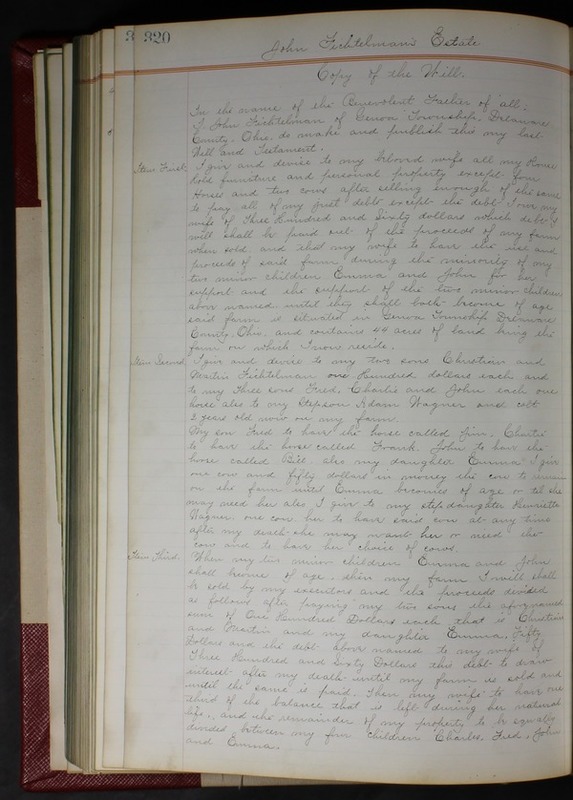 3 320
John Fichtelman's Estate
Copy of the Will.
In the name of the Benevolent Father of all.
I, John Fichtelman of Genoa Township, Delaware
County, Ohio, do make and publish this my last
Will and Testament.
Item First. I give and devise to my beloved wife all my House
hold furniture and personal property except four
Horses and two cows after selling enough of the same
to pay all of my just debts except the debt I owe my
wife of Three Hundred and Sixty dollars which debt I
will shall be paid out of the proceeds of my farm
when sold and that my wife to have the use and
proceeds of said farm during the minority of my
two minor children Emma and John for her
support and the support of the two minor children
above named until they shall both become of age
said farm is situated in Genoa Township Delaware
County, Ohio, and contains 44 acres of land being the
farm on which I now reside.
Item Second, I give and devise to my two sons Christian and
Martin Fichtelman one Hundred dollars each and
to my Three sons Fred, Charlie and John each one
horse also to my Stepson Adam Wagner and colt
3 years old now on my farm.
My son Fred to have the horse called Jim, Charlie
to have the horse called Frank, John to have the
horse called Bill also my daughter Emma I give
one cow and fifty dollars in money the cow to remain
on the farm until Emma becomes of age or till she
may need her also I give to my step daughter Henrietta
Wagner one cow her to have said cow at any time
after my death she may want her or need the
cow and to have her choice of cows.
Item Third. When my two minor children Emma and John
shall become of age, then my farm I will shall
be sold by my executors and the proceeds divided
as follows after paying my two sons the aforenamed
sum of One Hundred Dollars each that is Christian
and Martin and my daughter Emma, Fifty
Dollars and the debt above named to my wife of
Three Hundred and Sixty Dollars this debt to draw
interest after my death until my farm is sold and
until the same is paid. Then my wife to have one
third of the balance that is left during her natural
life, and the remainder of my property to be equally
divided between my four children Charles, Fred, John
and Emma.